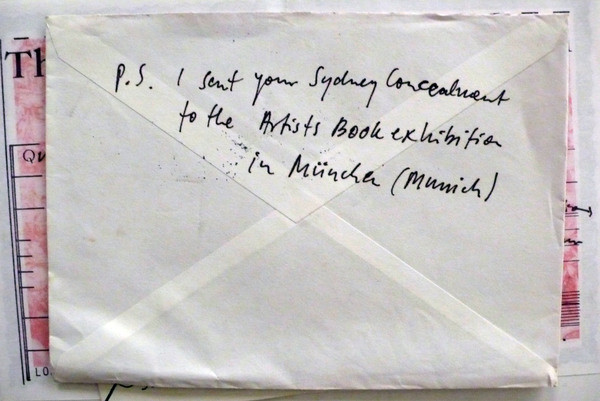 P.S. I sent your Sydney Concealment
to the Artists Book exhibition
in München (Munich)
Th
QU
LO